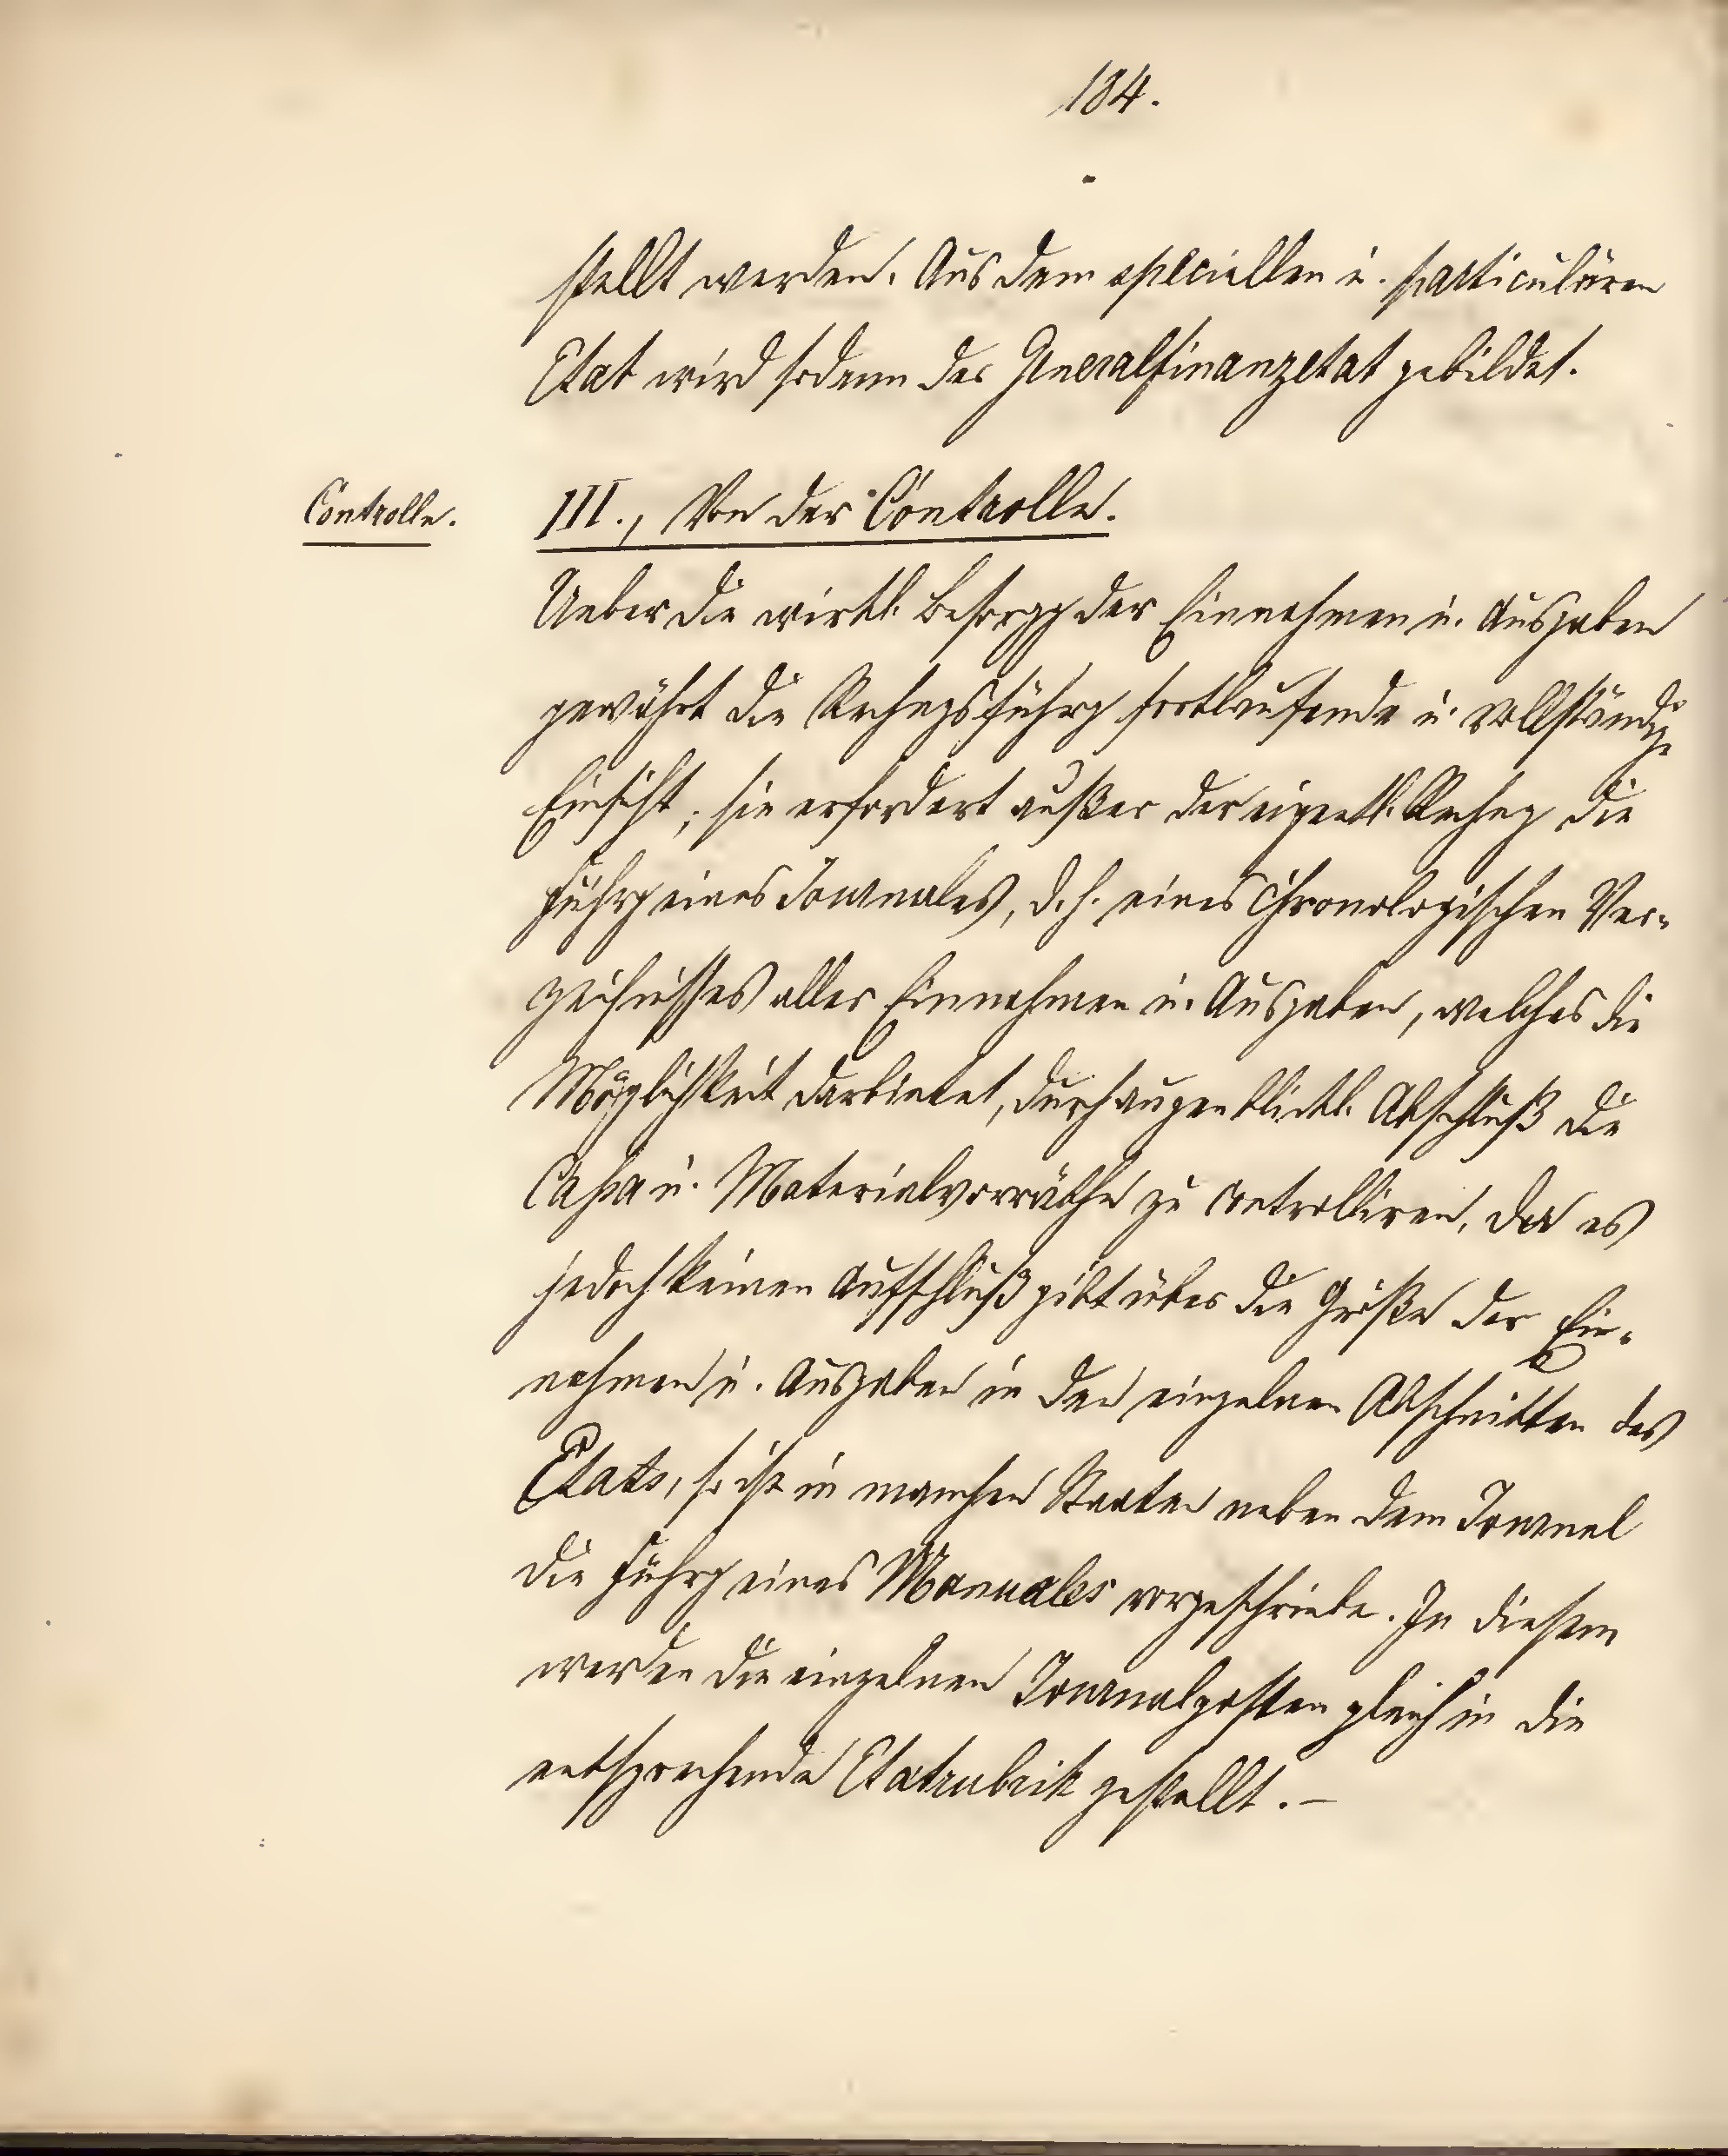 184.
stellt werden. Aus dem speciellen u. particulären
Etat wird sodann der Generalfinanzetat gebildet.
Controlle.
III., Von der Controlle.
Ueber die wirkl. Besorgg der Einnahmen u. Ausgaben
gewährt die Rechngsführg fortlaufende u. vollständge
Einsicht; sie erfordert außer der eigentl. Rechng die
Führg eines Journales, d. h. eines chronologischen Ver-
zeichnisses aller Einnahmen u. Ausgaben, welches die
Möglichkeit darbietet, durch augenblickl. Abschluß die
Cassa u. Materialvorräthe zu controlliren. Da es
jedoch keinen Aufschluß gibt über die Größe der Ein-
nahmen u. Ausgaben in den einzelnen Abschnitten des
Etats, so ist in manchen Staaten neben dem Journal
die Führg eines Manuales vorgeschriebe. In diesem
werden die einzelnen Journalposten gleich in die
entsprechende Etatrubrik gestellt. –